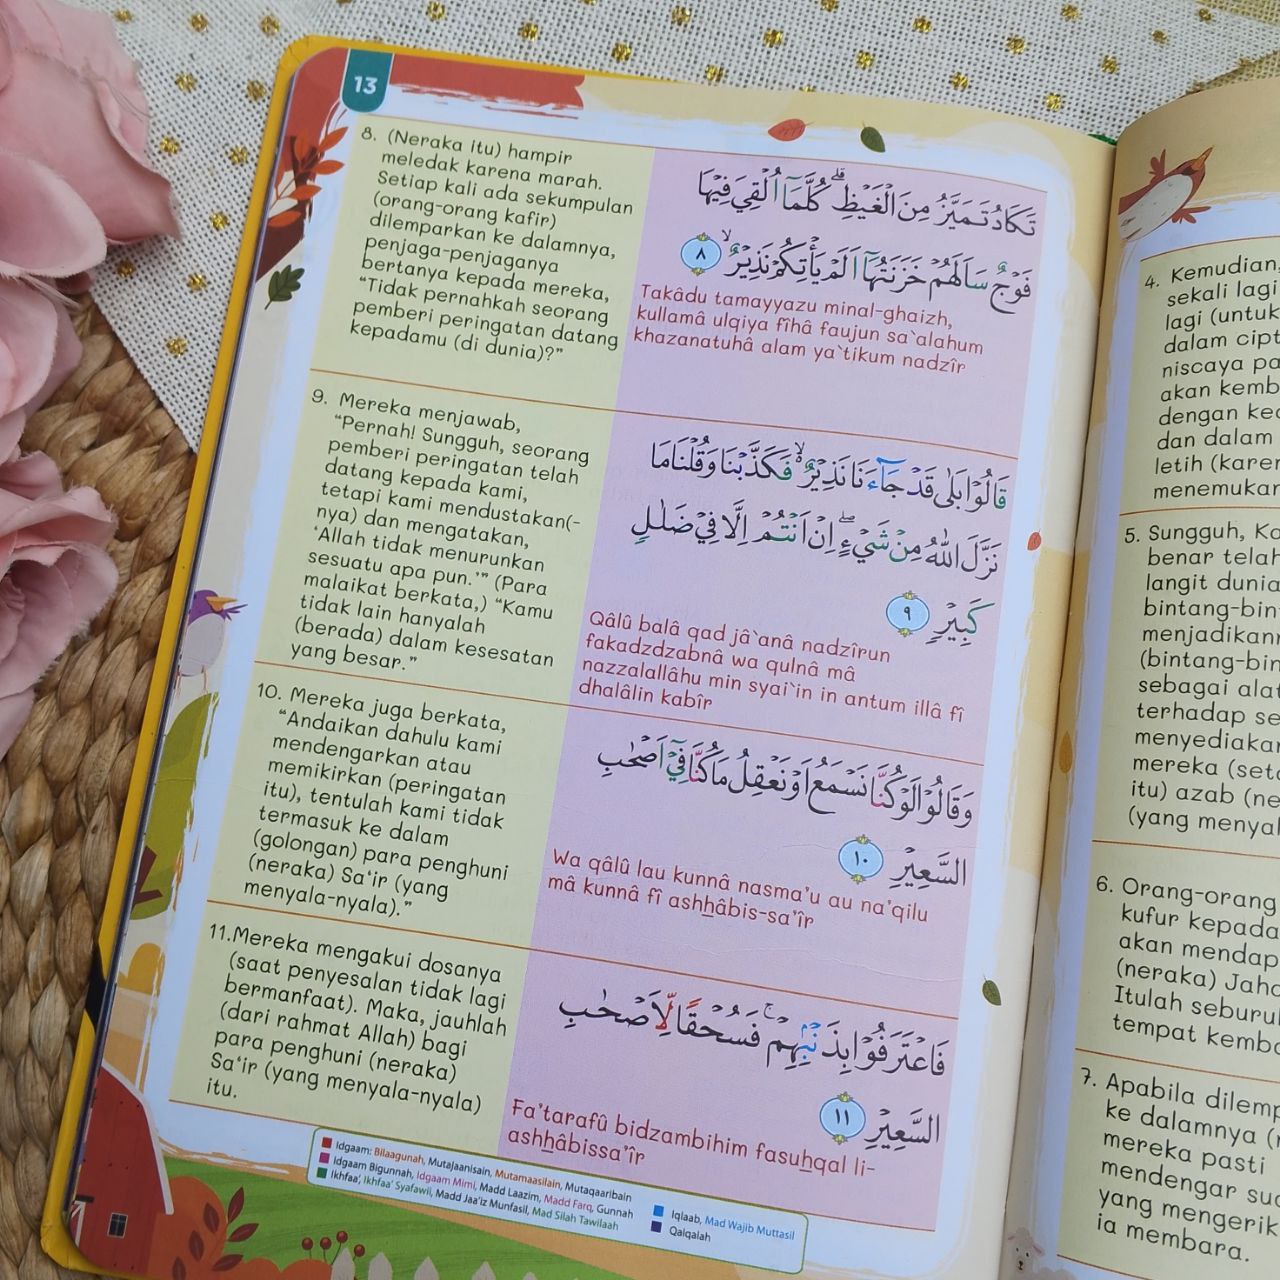 13
8. (Neraka itu) hampir
meledak karena marah.
Setiap kali ada sekumpulan
(orang-orang kafir)
dilemparkan ke dalamnya,
penjaga-penjaganya
bertanya kepada mereka,
“Tidak pernahkah seorang
pemberi peringatan datang
kepadamu (di dunia)?”
تَكَادُ تَمَيَّزُ مِنَ الْغَيْظِۗ كُلَّمَآ اُلْقِيَ فِيْهَا
فَوْجٌ سَاَلَهُمْ خَزَنَتُهَآ اَلَمْ يَأْتِكُمْ نَذِيْرٌۙ ٨
Takâdu tamayyazu minal-ghaizh,
kullamâ ulqiya fîhâ faujun sa`alahum
khazanatuhâ alam ya`tikum nadzîr
9. Mereka menjawab,
“Pernah! Sungguh, seorang
pemberi peringatan telah
datang kepada kami,
tetapi kami mendustakan(-
nya) dan mengatakan,
‘Allah tidak menurunkan
sesuatu apa pun.’” (Para
malaikat berkata,) “Kamu
tidak lain hanyalah
(berada) dalam kesesatan
yang besar.”
قَالُوْا بَلٰى قَدْ جَاۤءَنَا نَذِيْرٌۙ فَكَذَّبْنَا وَقُلْنَا مَا
نَزَّلَ اللّٰهُ مِنْ شَيْءٍۖ اِنْ اَنْتُمْ اِلَّا فِيْ ضَلٰلٍ
كَبِيْرٍ ٩
Qâlû balâ qad jâ`anâ nadzîrun
fakadzdzabnâ wa qulnâ mâ
nazzalallâhu min syai`in in antum illâ fî
dhalâlin kabîr
10. Mereka juga berkata,
“Andaikan dahulu kami
mendengarkan atau
memikirkan (peringatan
itu), tentulah kami tidak
termasuk ke dalam
(golongan) para penghuni
(neraka) Sa‘ir (yang
menyala-nyala).”
وَقَالُوْا لَوْ كُنَّا نَسْمَعُ اَوْ نَعْقِلُ مَا كُنَّا فِيْٓ اَصْحٰبِ
السَّعِيْرِ ١٠
Wa qâlû lau kunnâ nasma’u au na’qilu
mâ kunnâ fî ashhâbis-sa’îr
11.Mereka mengakui dosanya
(saat penyesalan tidak lagi
bermanfaat). Maka, jauhlah
(dari rahmat Allah) bagi
para penghuni (neraka)
Sa‘ir (yang menyala-nyala)
itu.
فَاعْتَرَفُوْا بِذَنْۢبِهِمْۚ فَسُحْقًا لِّاَصْحٰبِ
السَّعِيْرِ ١١
Fa’tarafû bidzambihim fasuhqal li-
ashhâbissa’îr
Idgaam: Bilaagunah, Mutajaanisain, Mutamaasilain, Mutaqaaribain
Idgaam Bigunnah, Idgaam Mimi, Madd Laazim, Madd Farq, Gunnah
Ikhfaa’, Ikhfaa’ Syafawii, Madd Jaa’iz Munfasil, Mad Silah Tawilaah
Iqlaab, Mad Wajib Muttasil
Qalqalah
4. Kemudian,
sekali lagi
lagi (untuk
dalam cipt
niscaya pa
akan kemb
dengan kec
dan dalam
letih (karer
menemukar
5. Sungguh, Ka
benar telah
langit dunia
bintang-bin
menjadikan
(bintang-bin
sebagai alat
terhadap se
menyediakan
mereka (seta
itu) azab (ne
(yang menyal
6. Orang-orang
kufur kepada
akan mendap
(neraka) Jaha
Itulah seburul
tempat kemba
7. Apabila dilemp
ke dalamnya (n
mereka pasti
mendengar sua
yang mengerik
ia membara.